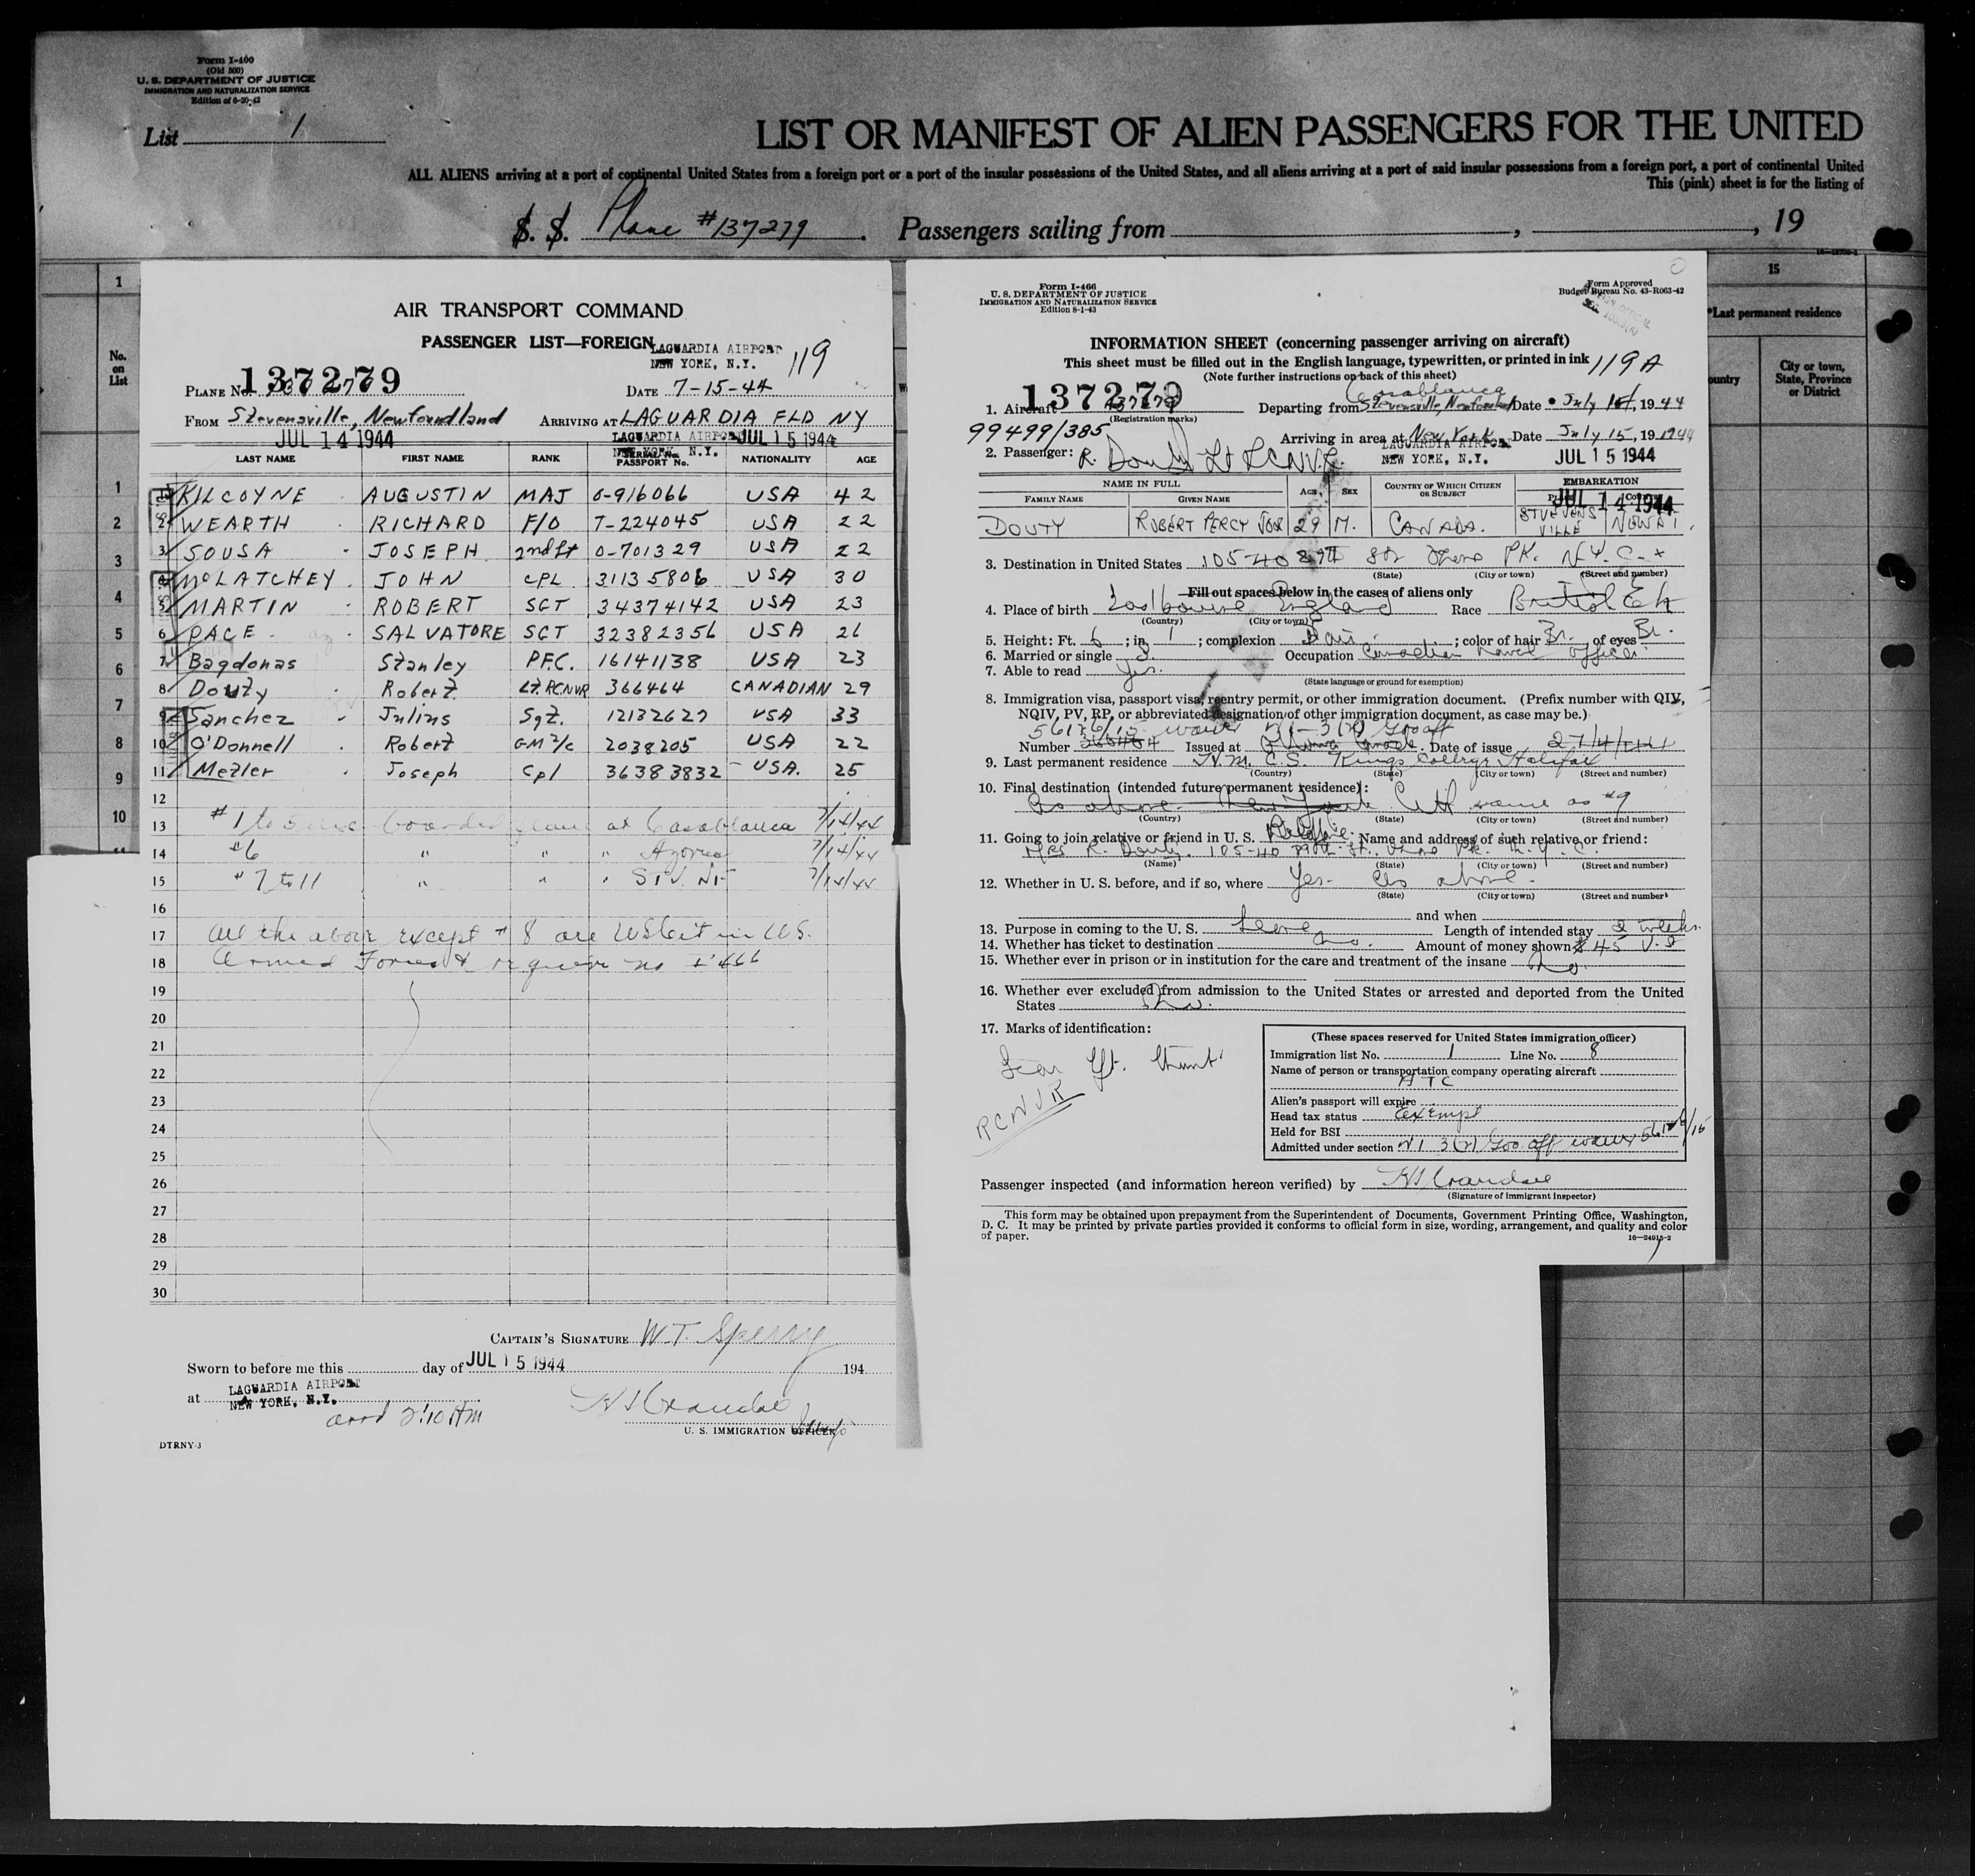 Form I-400
(Old 500)
U. S. DEPARTMENT OF JUSTICE
IMMIGRATION AND NATURALIZATION SERVICE
Edition of 6-20-42
List 1
LIST OR MANIFEST OF ALIEN PASSENGERS FOR THE UNITED
ALL ALIENS arriving at a port of continental United States from a foreign port or a port of the insular possessions of the United States, and all aliens arriving at a port of said insular possessions from a foreign port, a port of continental United
This (pink) sheet is for the listing of
S. S. Plane #137279. Passengers sailing from , , 19
No. on List
1
2
3
4
5
6
7
8
9
10
15
*Last permanent residence
ountry
City or town, State, Province or District
AIR TRANSPORT COMMAND
PASSENGER LIST—FOREIGN
LAGUARDIA AIRPORT
NEW YORK, N.Y.
119
PLANE No. 137279 DATE 7-15-44
FROM Stevensville, Newfoundland ARRIVING AT LAGUARDIA FLD NY
JUL 14 1944 LAGUARDIA AIRPORT JUL 15 1944
NEW YORK, N.Y.
LAST NAME FIRST NAME RANK SERIAL No. PASSPORT No. NATIONALITY AGE
1 KILCOYNE AUGUSTIN MAJ 0-916066 USA 42
2 WEARTH RICHARD F/O T-224045 USA 22
3 SOUSA JOSEPH 2nd Lt 0-701329 USA 22
4 McLATCHEY JOHN CPL 31135806 USA 30
5 MARTIN ROBERT SGT 34374142 USA 23
6 PACE SALVATORE SGT 32382356 USA 26
7 Bagdonas Stanley P.F.C. 16141138 USA 23
8 Douty Robert Lt. RCNVR 366464 CANADIAN 29
9 Sanchez Julius Sgt. 12132627 USA 33
10 O'Donnell Robert GM 2/c 2038205 USA 22
11 Mezler Joseph Cpl 36383832 USA. 25
12
13 #1 to 5 inc. boarded plane at Casablanca 7/14/44
14 #6 " " " Azores 7/14/44
15 #7 to 11 " " " STV. NF 7/14/44
16
17 All the above except #8 are US Cit in U.S.
18 Armed Forces & require no I-466
19
20
21
22
23
24
25
26
27
28
29
30
CAPTAIN'S SIGNATURE W.T. Sperry
Sworn to before me this day of JUL 15 1944 194
at LAGUARDIA AIRPORT
NEW YORK, N.Y.
arrd 2:10 AM
U. S. IMMIGRATION OFFICER
DTRNY-3
Form I-466
U. S. DEPARTMENT OF JUSTICE
IMMIGRATION AND NATURALIZATION SERVICE
Edition 8-1-43
Form Approved
Budget Bureau No. 43-R063-42
INFORMATION SHEET (concerning passenger arriving on aircraft)
This sheet must be filled out in the English language, typewritten, or printed in ink 119A
(Note further instructions on back of this sheet)
137279 Casablanca
1. Aircraft 137279 Departing from Stevensville, Newfoundland Date July 14, 1944
(Registration marks)
99499/385
Arriving in area at New York Date July 15, 1944
LAGUARDIA AIRPORT
NEW YORK, N.Y. JUL 15 1944
2. Passenger: R. Douty Lt RCNVR.
NAME IN FULL AGE SEX COUNTRY OF WHICH CITIZEN OR SUBJECT EMBARKATION
FAMILY NAME GIVEN NAME
JUL 14 1944
DOUTY ROBERT PERCY 29 M. CANADA. STVEVENSVILLE
3. Destination in United States 105-40 89th N.Y.C.
(State) (City or town) (Street and number)
Fill out spaces below in the cases of aliens only
4. Place of birth England Race British
(Country) (City or town)
5. Height: Ft. 6; in. 1; complexion Fair; color of hair Br. of eyes Br.
6. Married or single S. Occupation Canadian Naval Officer
7. Able to read Yes.
(State language or ground for exemption)
8. Immigration visa, passport visa, reentry permit, or other immigration document. (Prefix number with QIV, NQIV, PV, RP, or abbreviated designation of other immigration document, as case may be.)
56126/15
Number 366464 Issued at Date of issue
9. Last permanent residence H.M.C.S. Kings College Halifax
(Country) (State) (City or town) (Street and number)
10. Final destination (intended future permanent residence):
As above New York same as #9
(Country) (State) (City or town) (Street and number)
11. Going to join relative or friend in U. S. Relative. Name and address of such relative or friend:
Mrs R. Douty. 105-40 89th St. N.Y.C.
(Name) (State) (City or town) (Street and number)
12. Whether in U. S. before, and if so, where Yes - As above.
(State) (City or town) (Street and number)
and when
13. Purpose in coming to the U. S. Leave Length of intended stay 2 weeks.
14. Whether has ticket to destination no. Amount of money shown $45 U.S
15. Whether ever in prison or in institution for the care and treatment of the insane no.
16. Whether ever excluded from admission to the United States or arrested and deported from the United States no.
17. Marks of identification:
Scar
RCNVR
(These spaces reserved for United States immigration officer)
Immigration list No. 1 Line No. 8
Name of person or transportation company operating aircraft
ATC
Alien's passport will expire
Head tax status Exempt
Held for BSI
Admitted under section 3(2) 56126/15
Passenger inspected (and information hereon verified) by
(Signature of immigrant inspector)
This form may be obtained upon prepayment from the Superintendent of Documents, Government Printing Office, Washington,
D. C. It may be printed by private parties provided it conforms to official form in size, wording, arrangement, and quality and color
of paper.
16—24915-2